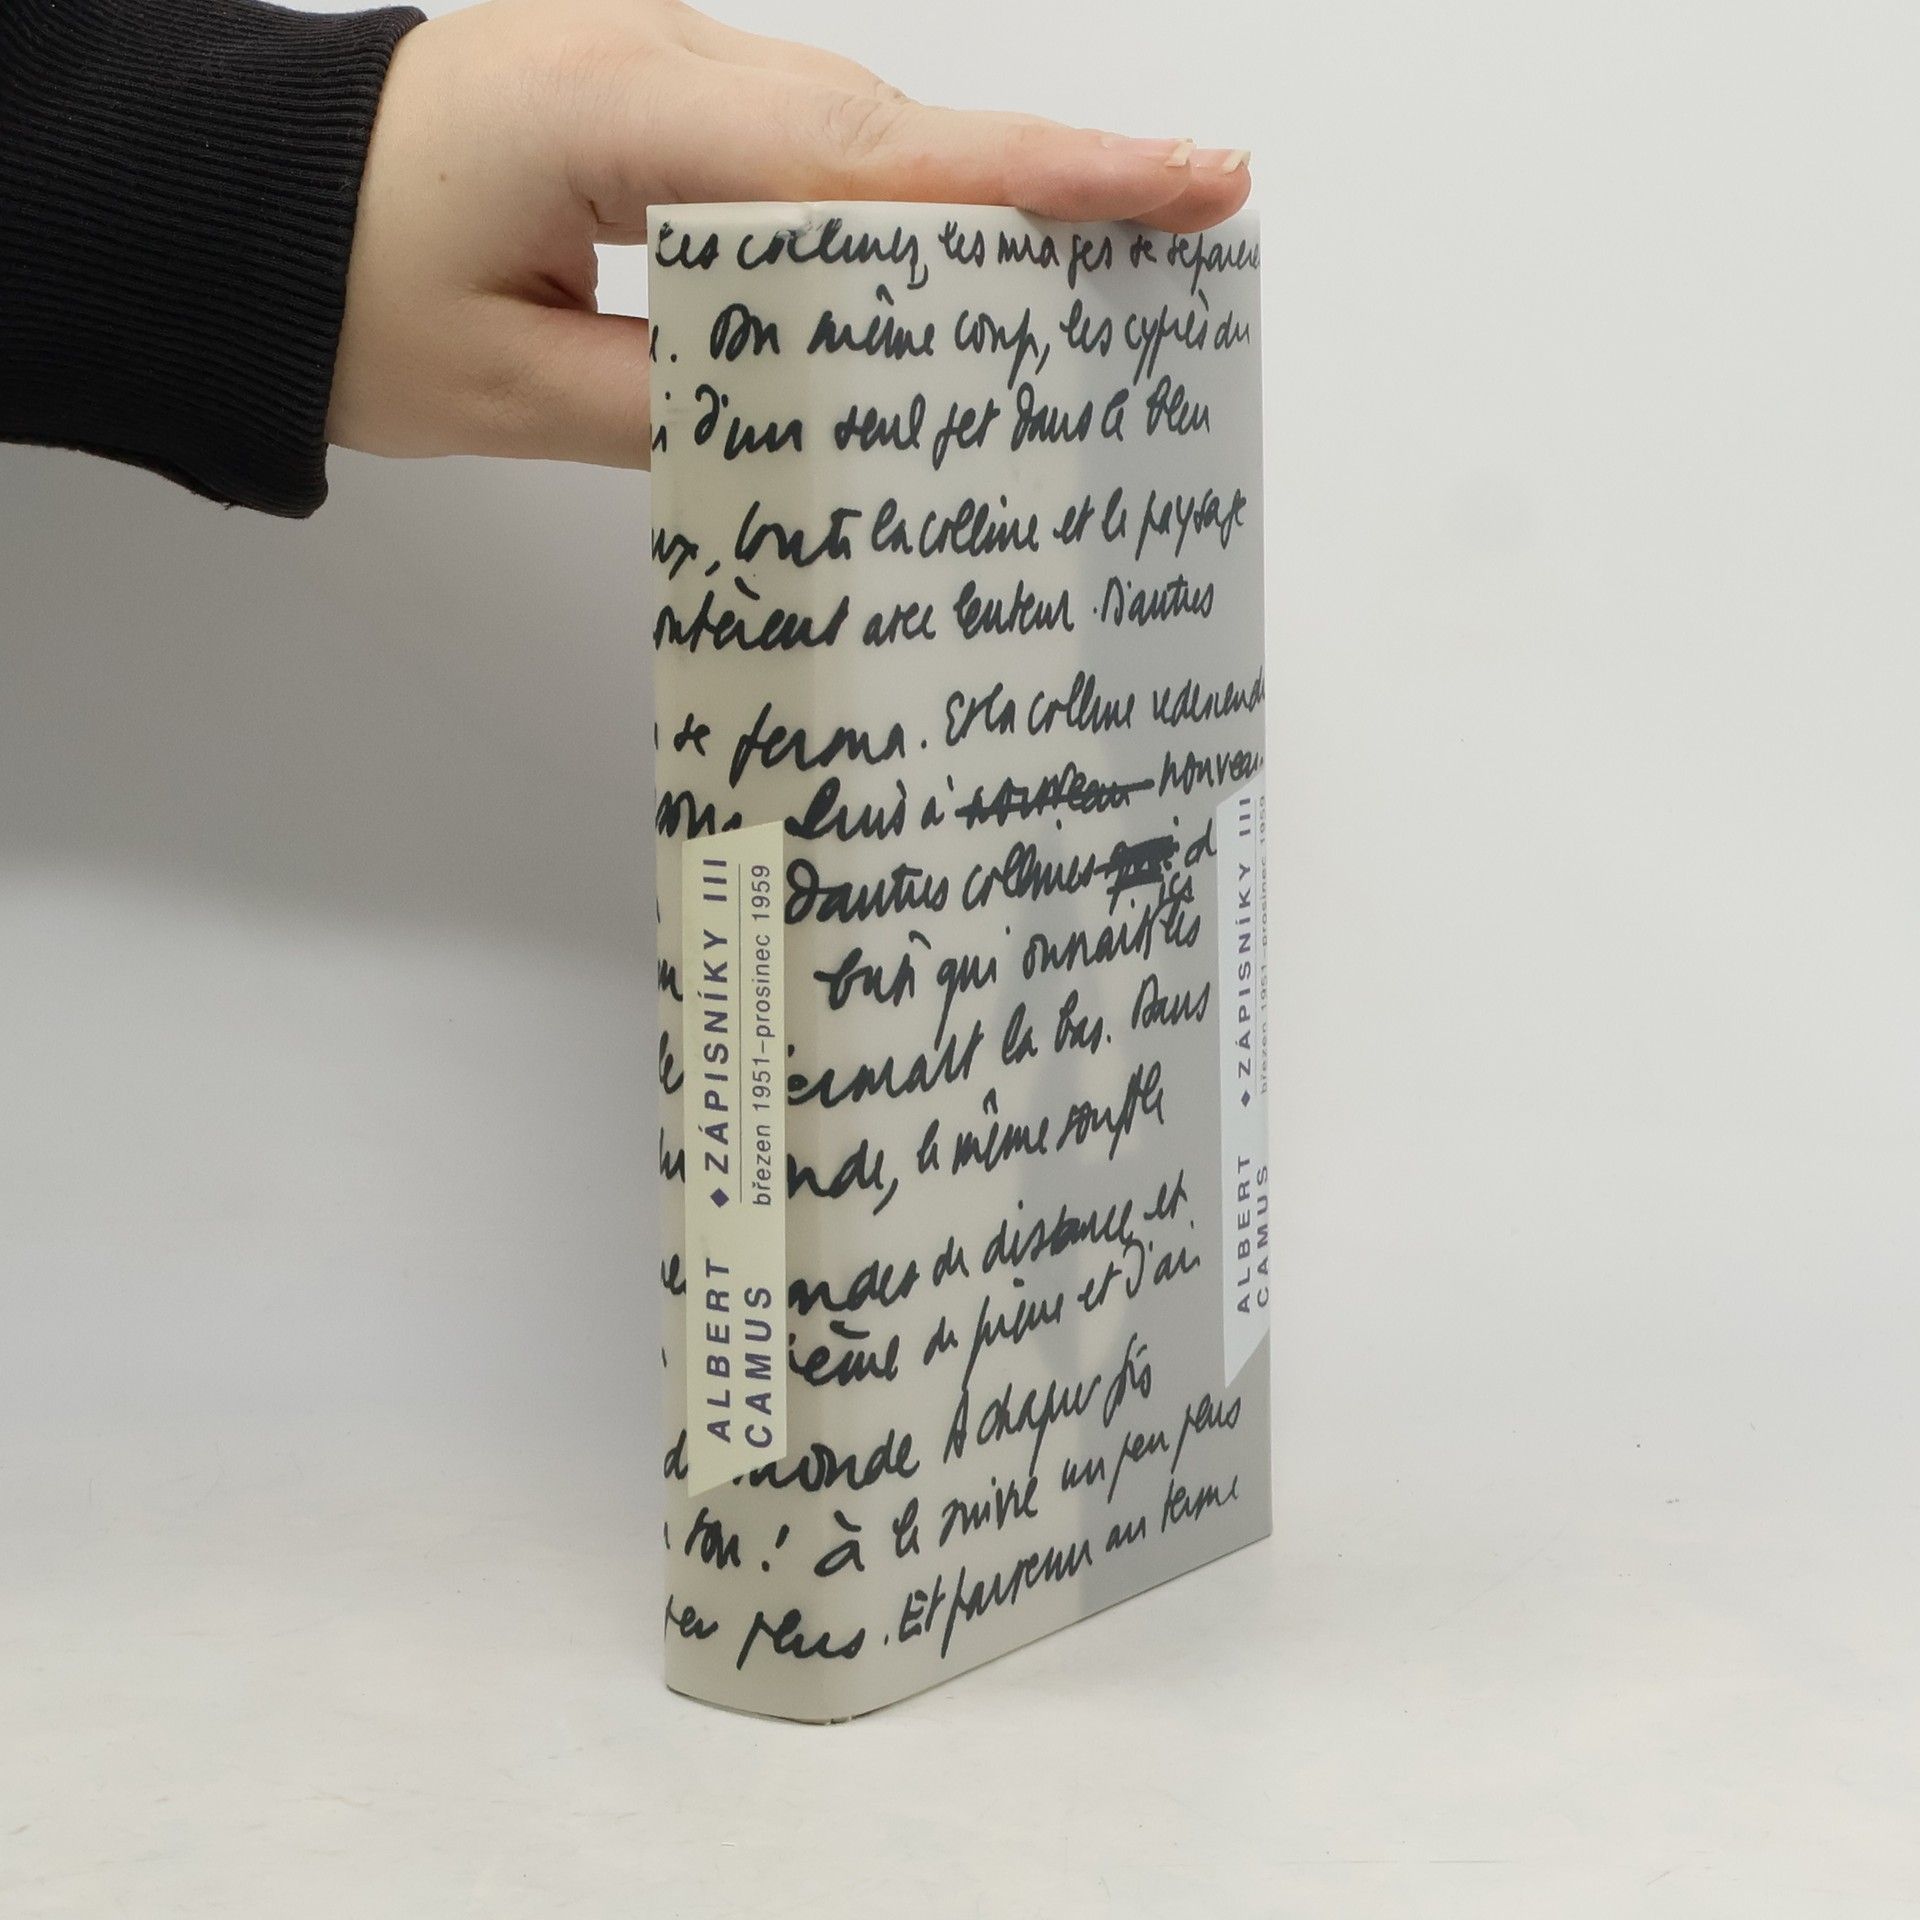 les collines, les nuages se séparère
. Du même coup, les cyprès du
d'un seul jet dans le bleu
ux, toute la colline et le paysage
ontèrent avec lenteur. D'autres
se ferma. Et la colline redescend
Puis à nouveau nouveau
D'autres collines
qui
ermait là bas. Dans
nde, le même souffle
de distance, et
ème de pierre et d'ai
monde A chaque fois
son! à le suivre un peu plus
peu plus. Et parvenu au terme
ALBERT CAMUS ◆ ZÁPISNÍKY III
březen 1951–prosinec 1959
ALBERT CAMUS ◆ ZÁPISNÍKY III
březen 1951–prosinec 1959